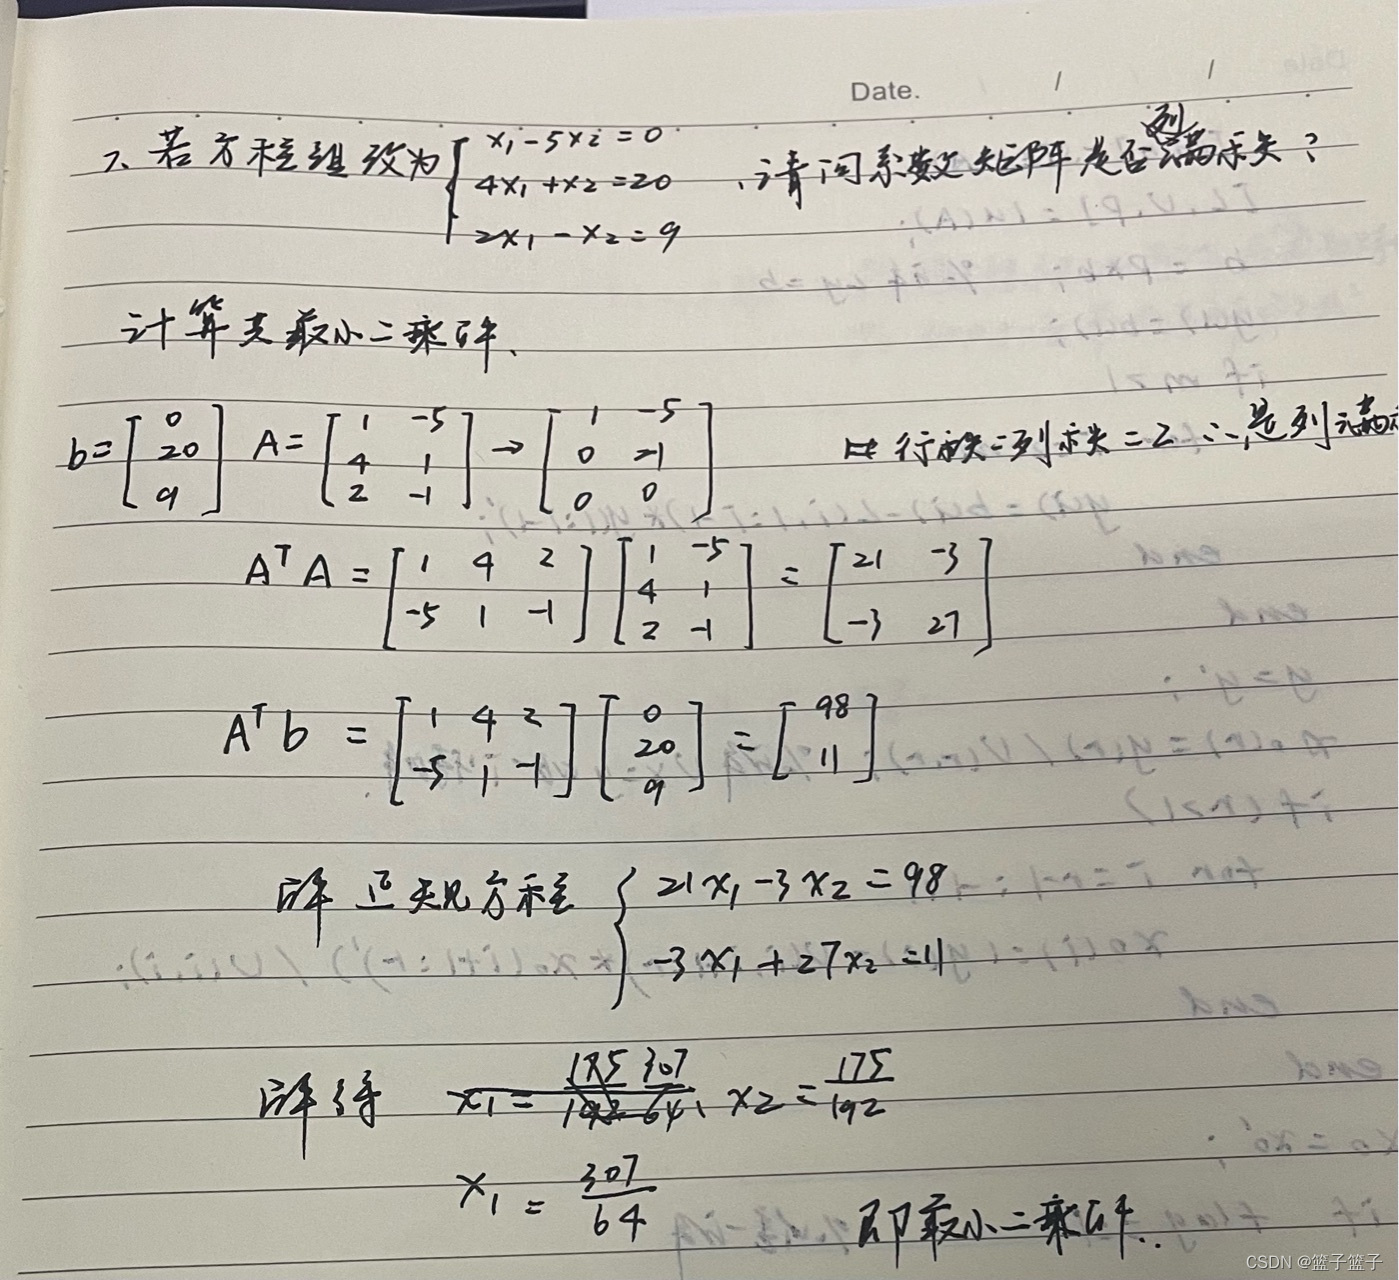 Date. / /
7、若方程组改为 { x₁-5x₂=0 、请问系数矩阵是否列满秩?
4x₁+x₂=20
2x₁-x₂=9
计算其最小二乘解、
b=[0 20 9] A=[1 -5; 4 1; 2 -1] → [1 -5; 0 -1; 0 0] 行秩=列秩=2 ∴是列满
AᵀA = [1 4 2; -5 1 -1] [1 -5; 4 1; 2 -1] = [21 -3; -3 27]
Aᵀb = [1 4 2; -5 1 -1] [0 20 9] = [98 11]
解正规方程 { 21x₁-3x₂=98
-3x₁+27x₂=11
解得 x₁= 307/64、x₂=175/192
x₁ = 307/64 即最小二乘解..
CSDN @篮子篮子